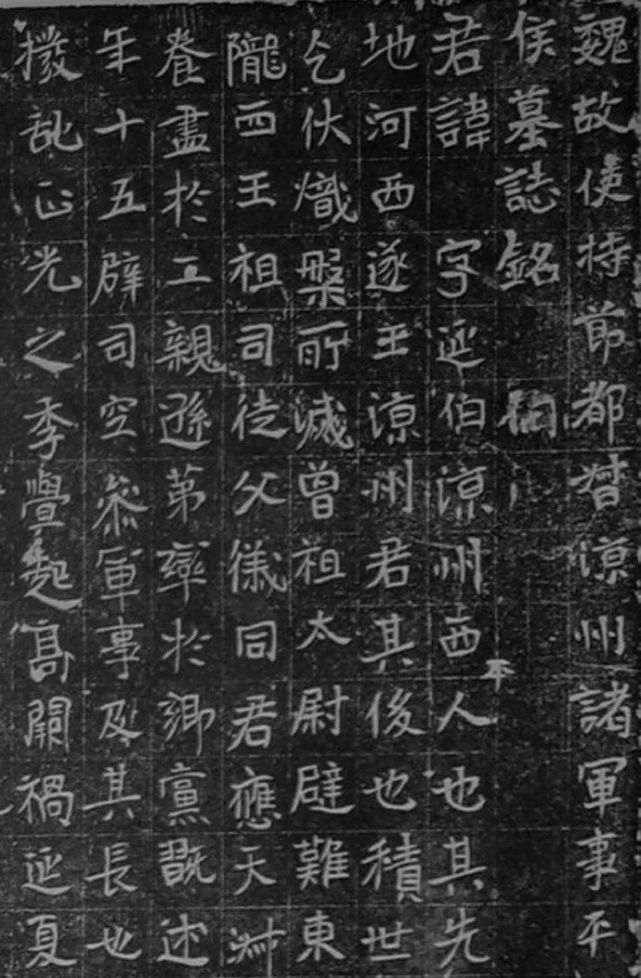 魏故使持節都督涼州諸軍事平
侯墓誌銘
君諱 字延伯涼州西平人也其先
地河西遂王涼州君其後也積世
乞伏熾槃所滅曾祖太尉避難東
隴西王祖司徒父儀同君應天淋
養盡於二親遜第率於鄉黨既述
年十五辟司空參軍事及其長也
撥亂正光之季舋起高闕禍延夏